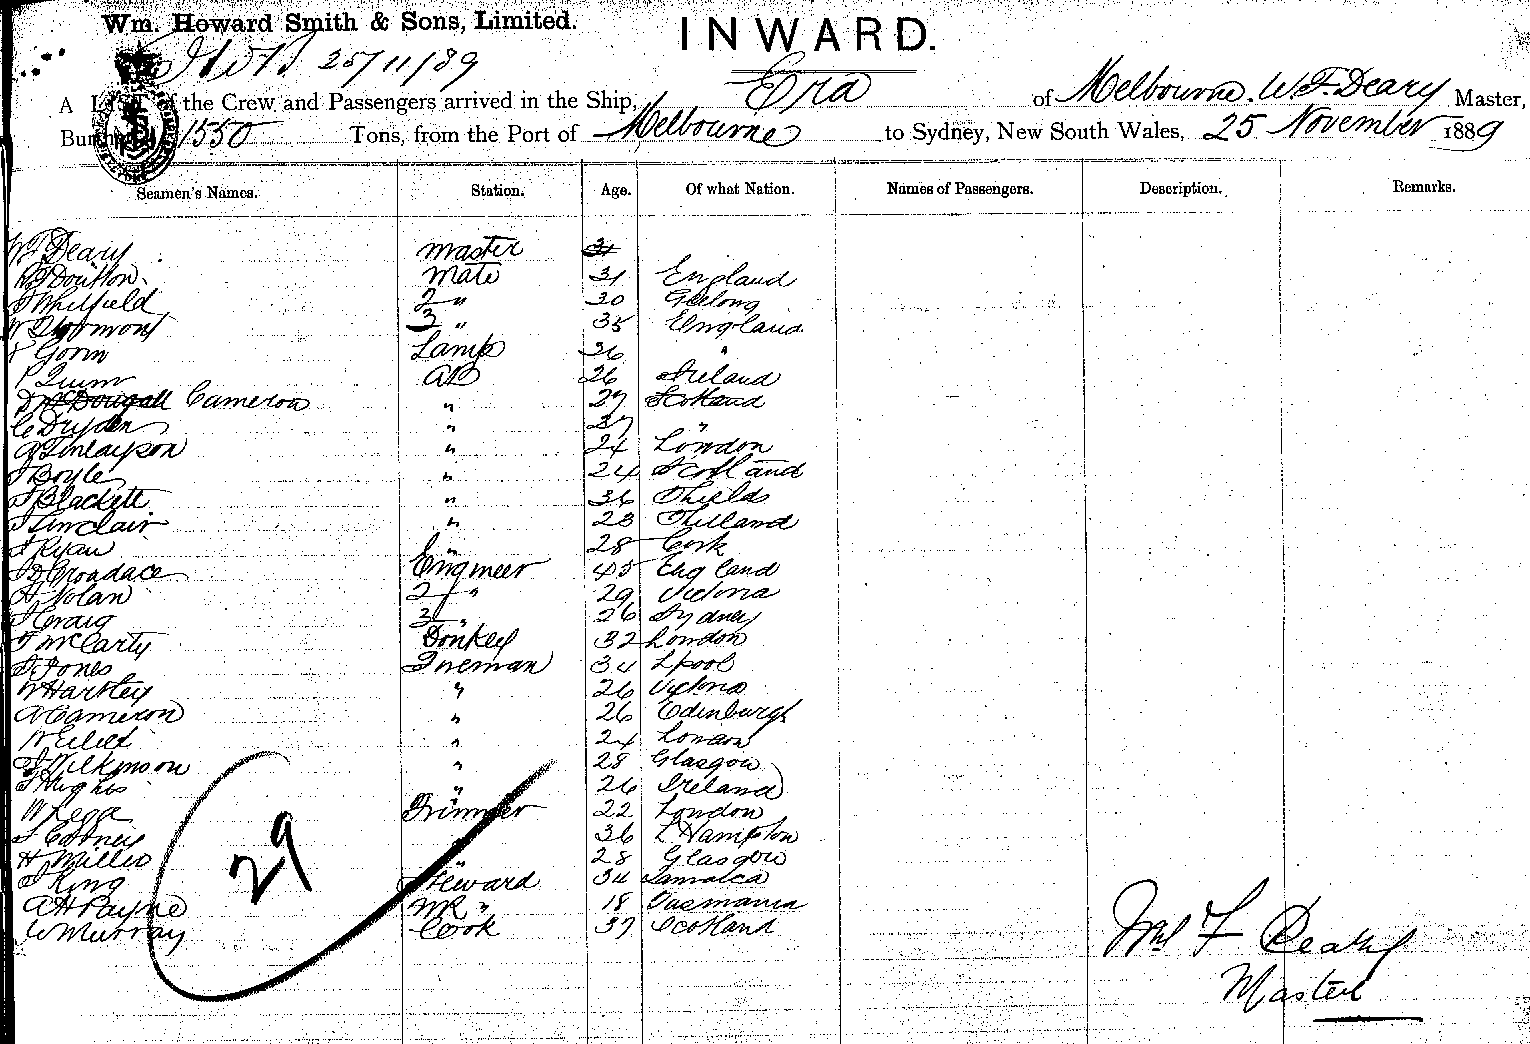 Wm. Howard Smith & Sons, Limited.
INWARD.
25/11/89
A List of the Crew and Passengers arrived in the Ship, Era of Melbourne. W F Deary Master,
1550 Tons, from the Port of Melbourne to Sydney, New South Wales, 25 November 1889
Seamen's Names. Station. Age. Of what Nation. Names of Passengers. Description. Remarks.
W F Deary Master 31
Doutton. Mate 31 England
Whitfield 2 " 30 Geelong
3 " 35 England
Gorin Lamp 36 "
P Quinn AB 26 Ireland
D McDougall Cameron " 27 Scotland
C Dryden " 37 "
A Finlayson " 24 London
J Boyle " 24 Scotland
J Blackett " 36 Shields
J Sinclair " 28
J Ryan " 28 Cork
J D Croudace Engineer 45 England
H Nolan 2 " 29 Victoria
J Craig 3 " 26 Sydney
J McCarty Donkey 32 London
S Jones Fireman 34 Lpool
W Hartley " 26 Victoria
A Cameron " 26 Edinburgh
W " 24 London
J Wilkinson " 28 Glasgow
J Hughes " 26 Ireland
W Legge Trimmer 22 London
36 L Hampton
H " 28 Glasgow
J King Steward 34 Jamaica
A H Payne " 18 Tasmania
W Murray Cook 37 Scotland
29
Wm F Deary
Master